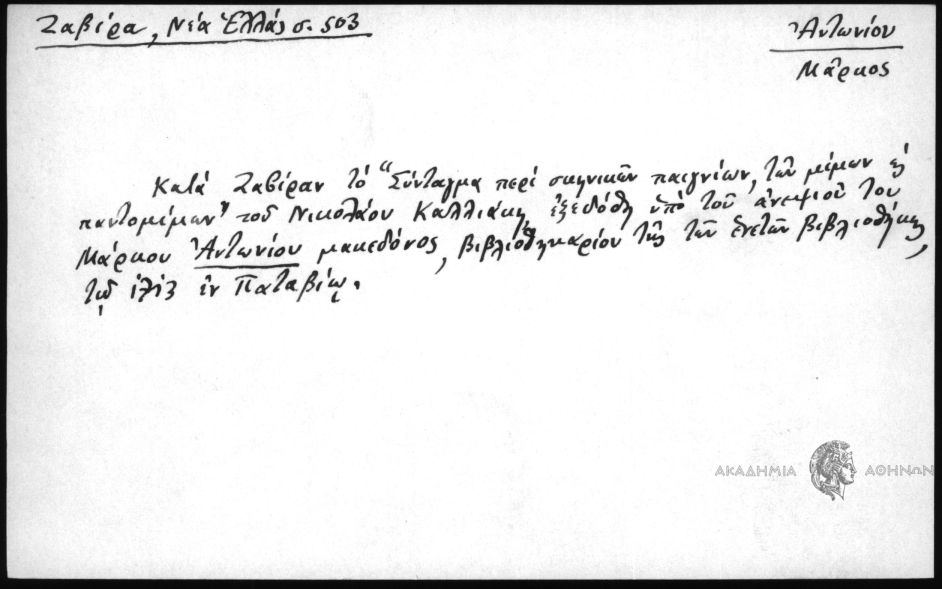 Ζαβίρα, Νέα Ἑλλάς σ. 503
Ἀντωνίου
Μᾶρκος
Κατά Ζαβίραν τό "Σύνταγμα περί σκηνικῶν παιγνίων, τῶν μίμων
παντομίμων" τοῦ Νικολάου Καλλιάκη, ἐξεδόθη ὑπό τοῦ ἀνεψιοῦ του
Μάρκου Ἀντωνίου μακεδόνος, βιβλιοθηκαρίου τῆς τῶν ἑνετῶν βιβλιοθήκης,
τῷ ἐν Παταβίῳ.
ΑΚΑΔΗΜΙΑ ΑΘΗΝΩΝ